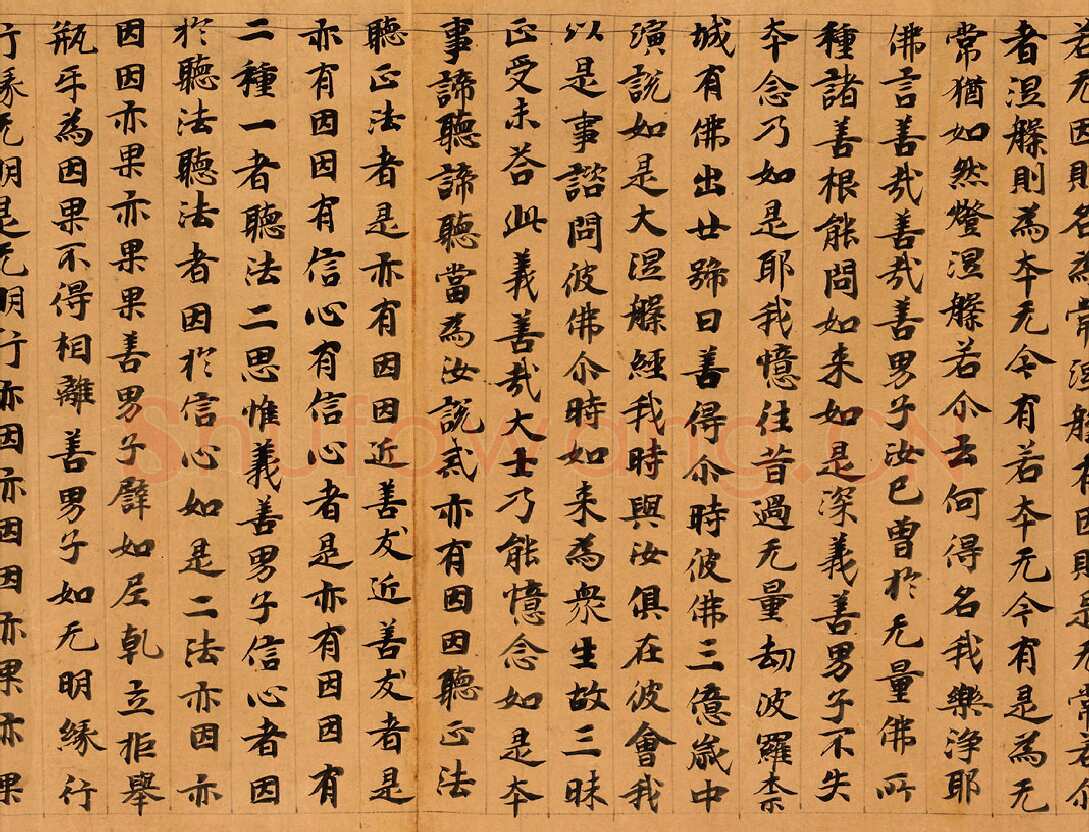 若无因則名為常涅槃有因則是无常若尒
者涅槃則為夲无今有若夲无今有是為无
常猶如然燈涅槃若尒云何得名我樂淨耶
佛言善哉善哉善男子汝已曾於无量佛所
種諸善根能問如来如是深義善男子不失
夲念乃如是耶我憶往昔過无量劫波羅柰
城有佛出世號曰善得尒時彼佛三億歲中
演說如是大涅槃經我時與汝俱在彼會我
以是事諮問彼佛尒時如来為眾生故三昧
正受未荅此義善哉大士乃能憶念如是夲
事諦聽諦聽當為汝說戒亦有因因聽正法
聽正法者是亦有因因近善友近善友者是
亦有因因有信心有信心者是亦有因因有
二種一者聽法二思惟義善男子信心者因
於聽法聽法者因於信心如是二法亦因亦
因因亦果亦果果善男子譬如尼乹立拒舉
瓶互為因果不得相離善男子如无明緣行
行緣无明是无明行亦因亦因因亦果亦果
Shufawang.CN